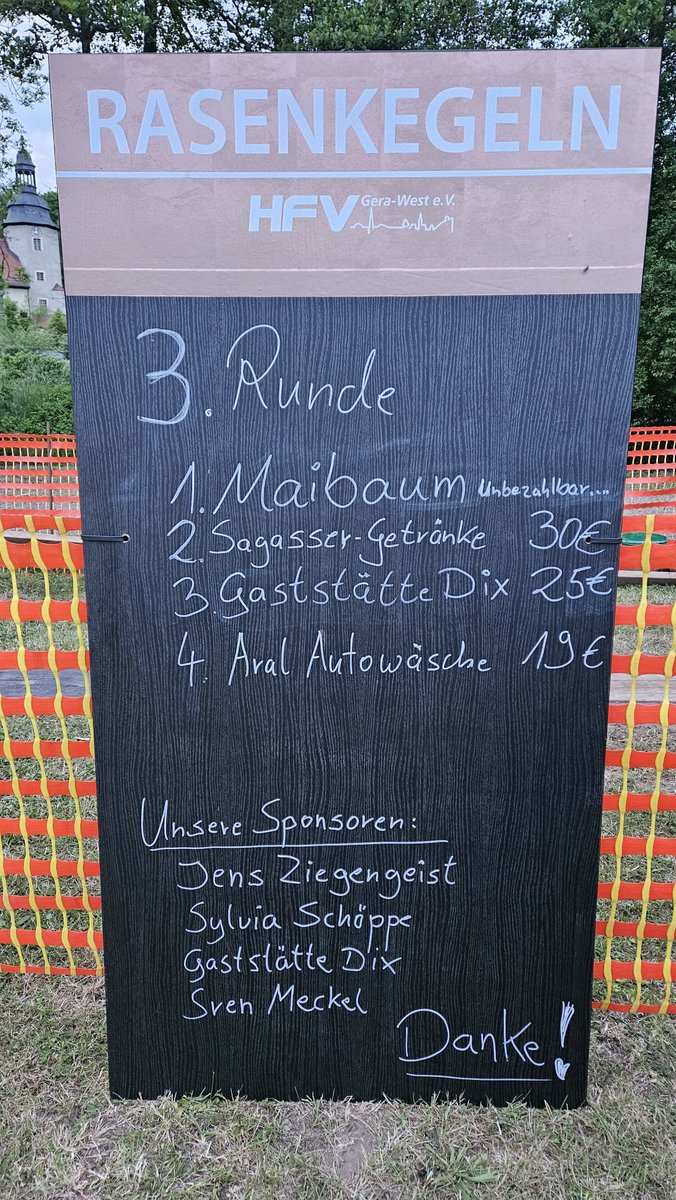 RASENKEGELN
HFV Gera-West e.V.
3. Runde
1. Maibaum Unbezahlbar....
2. Sagasser-Getränke 30€
3. Gaststätte Dix 25€
4. Aral Autowäsche 19€
Unsere Sponsoren:
Jens Ziegengeist
Sylvia Schöppe
Gaststätte Dix
Sven Meckel
Danke!